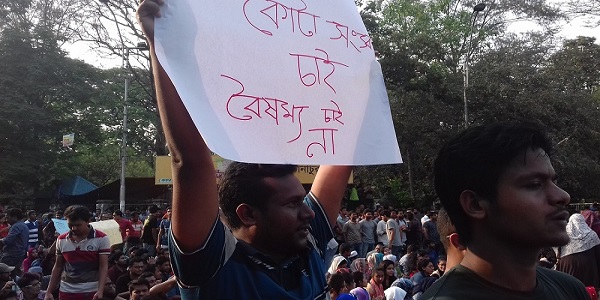 কোটা সংস্কার
চাই
বৈষম্য চাই
না